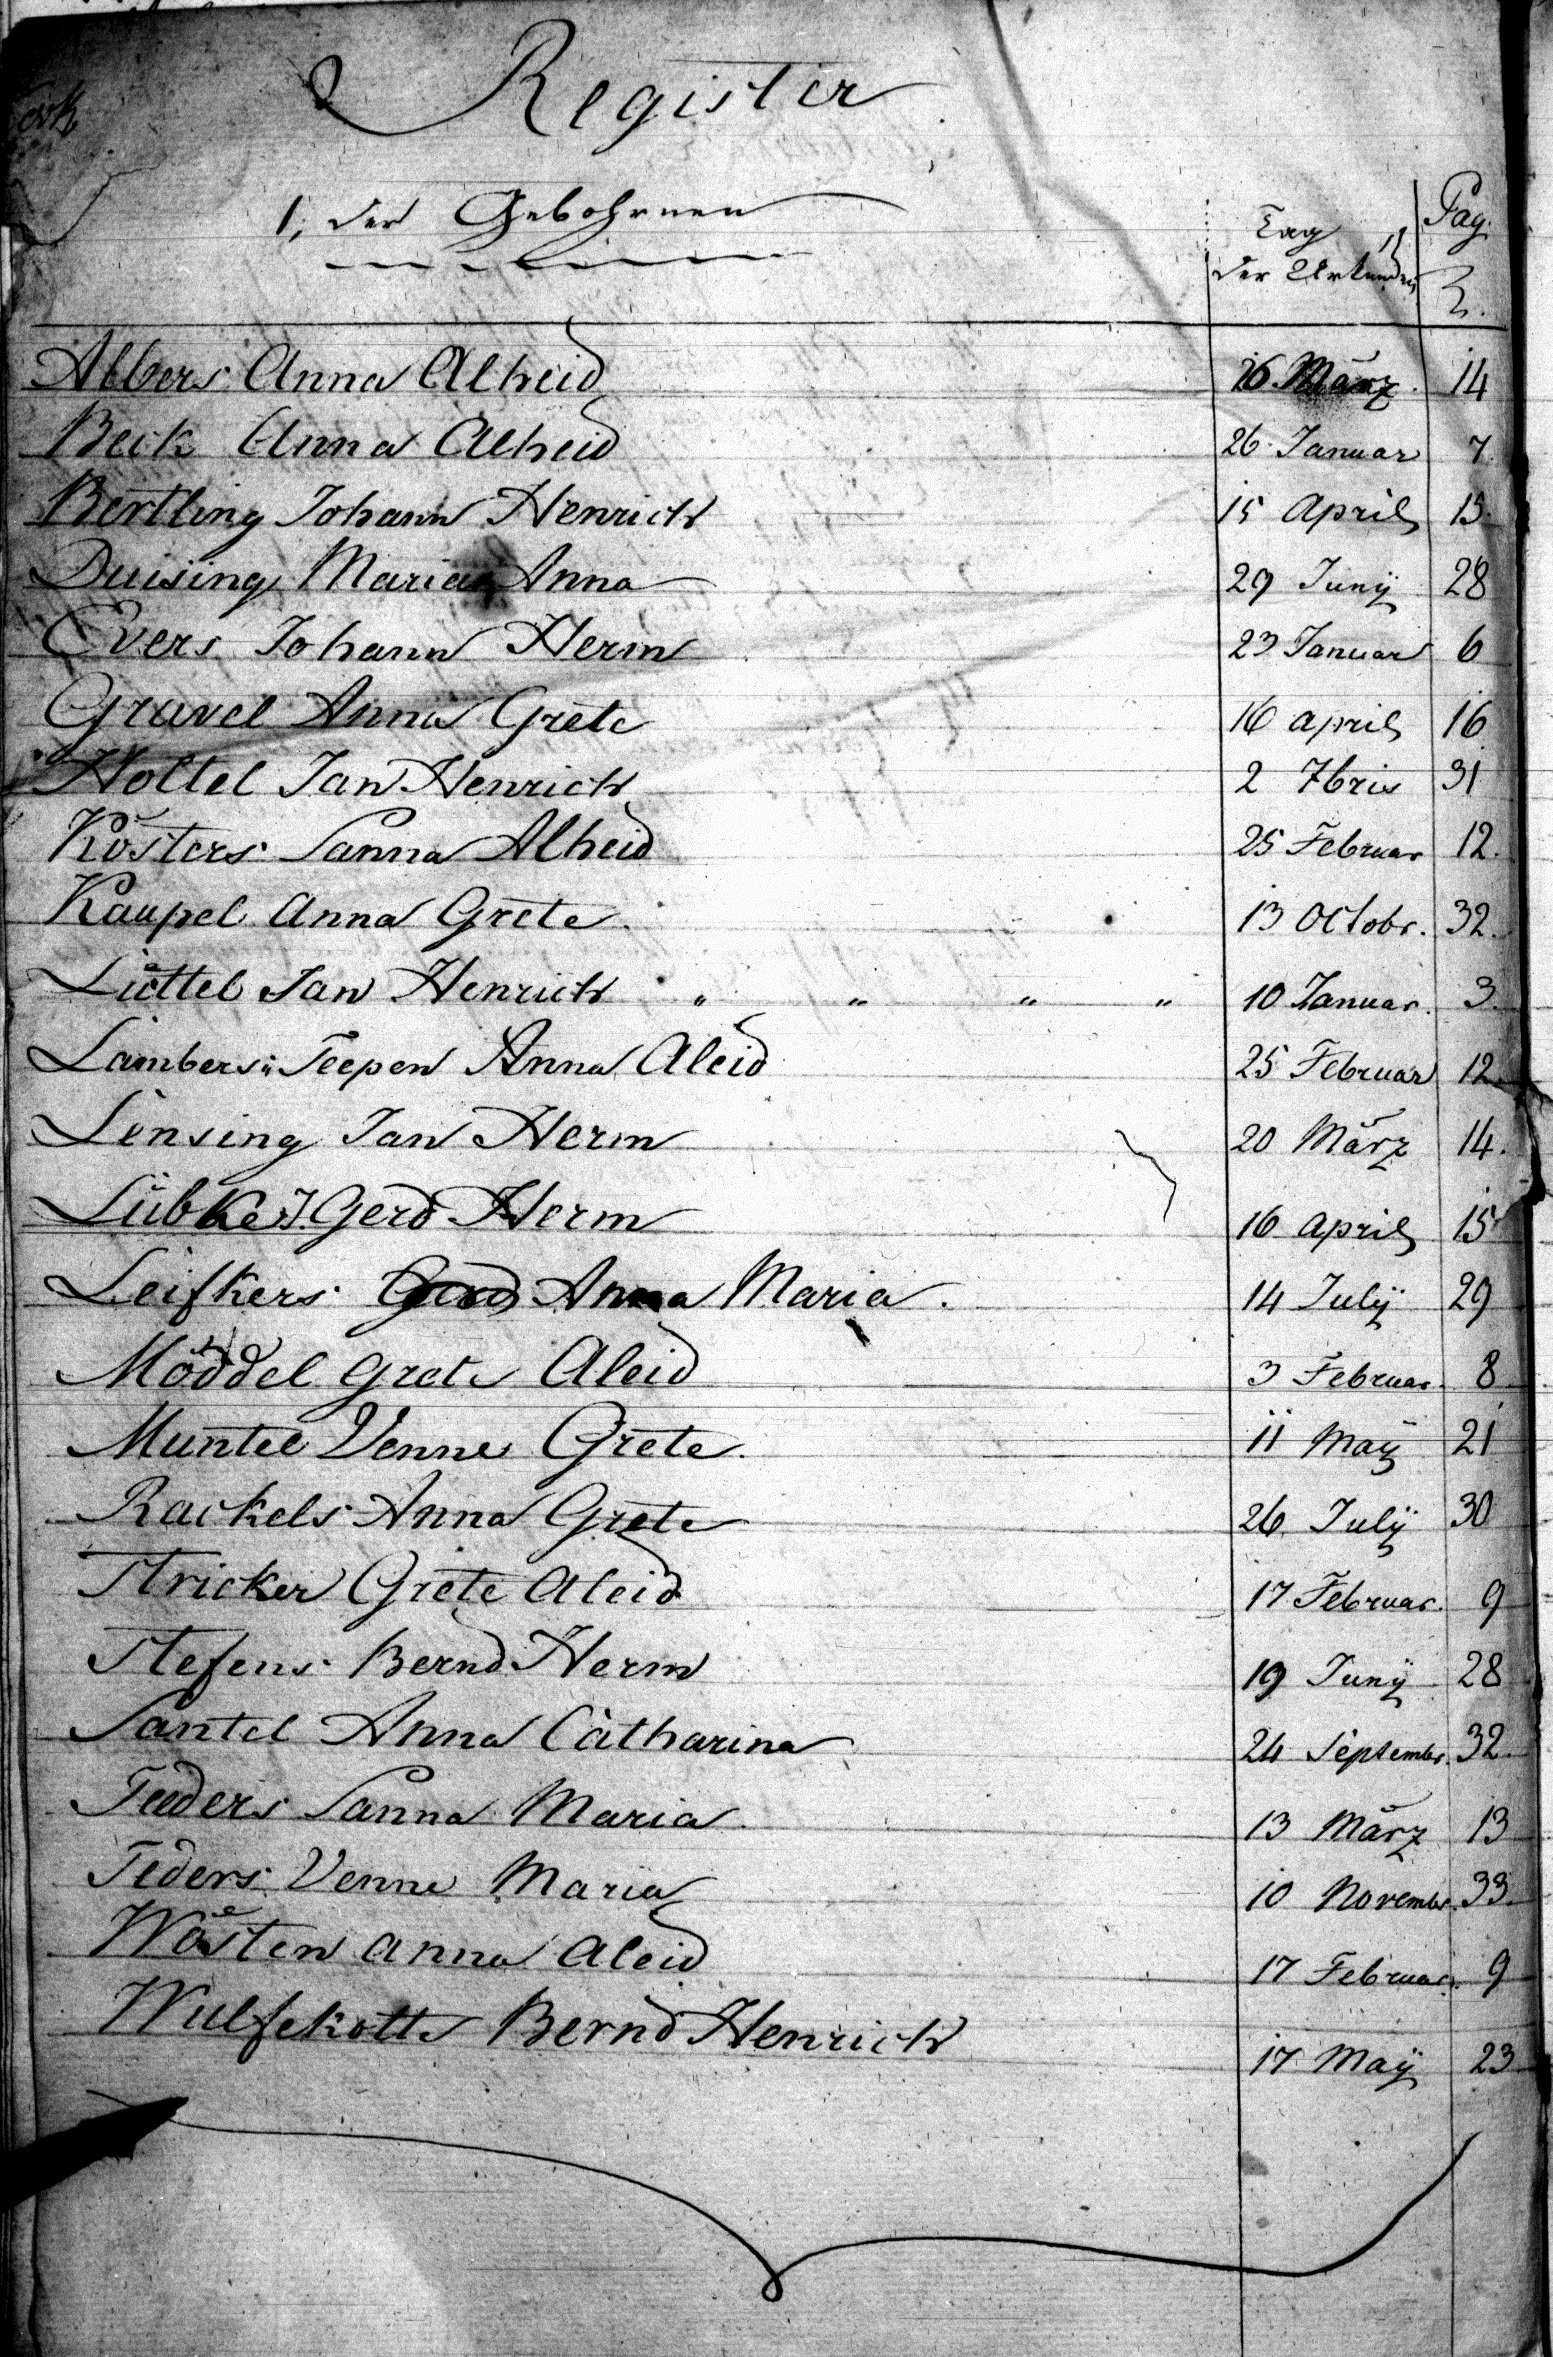 Register
1, der Gebohrnen
Tag der Urkunden
Pag.
Albers Anna Alheid 16 März. 14
Beck Anna Alheid 26 Januar 7
Bertling Johann Henrich 15 April 15.
Duising Maria Anna 29 Junÿ 28
Evers Johann Herm 23 Januar 6
Gravel Anna Grete 16 april 16
Holtel Jan Henrich 2 7bris 31
Kösters Sanna Alheid 25 Februar 12.
Kaupel Anna Grete. 13 Octobr. 32.
Lüttel Jan Henrich " " " " 10 Januar. 3.
Lambers Teepen Anna Aleid 25 Februar 12.
Lensing Jan Herm 20 März 14.
Lübke J. Gerd Herm 16 April 15
Leifkers Anna Maria. 14 Julÿ 29
Möddel Grete Aleid 3 Februar. 8
Muntel Venne Grete. 11 Maÿ 21
Rackels Anna Grete 26 Julÿ 30
Stricker Grete Aleid 17 Februar. 9
Stefens Bernd Herm 19 Junÿ 28
Santel Anna Catharina 24 Septembr. 32.
Teeders Sanna Maria. 13 März 13
Teders Venne Maria 10 Novembr. 33.
Wösten Anna Aleid 17 Februar. 9
Wulfekotte Bernd Henrich 17 Maÿ 23